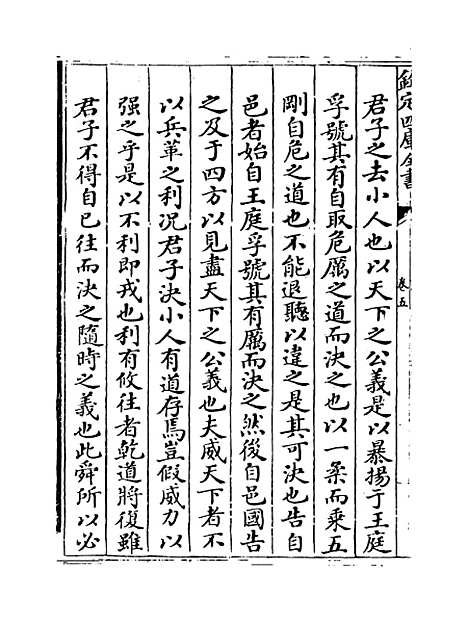 欽定四庫全書
卷五
君子之去小人也以天下之公義是以暴揚于王庭
孚號其有自取危厲之道而決之也以一柔而乘五
剛自危之道也不能退聽以違之是其可決也告自
邑者始自王庭孚號其有厲而決之然後自邑國告
之及于四方以見盡天下之公義也夫威天下者不
以兵革之利况君子決小人有道存焉豈假威力以
强之乎是以不利即戎也利有攸往者乾道將復雖
君子不得自已往而決之隨時之義也此舜所以必